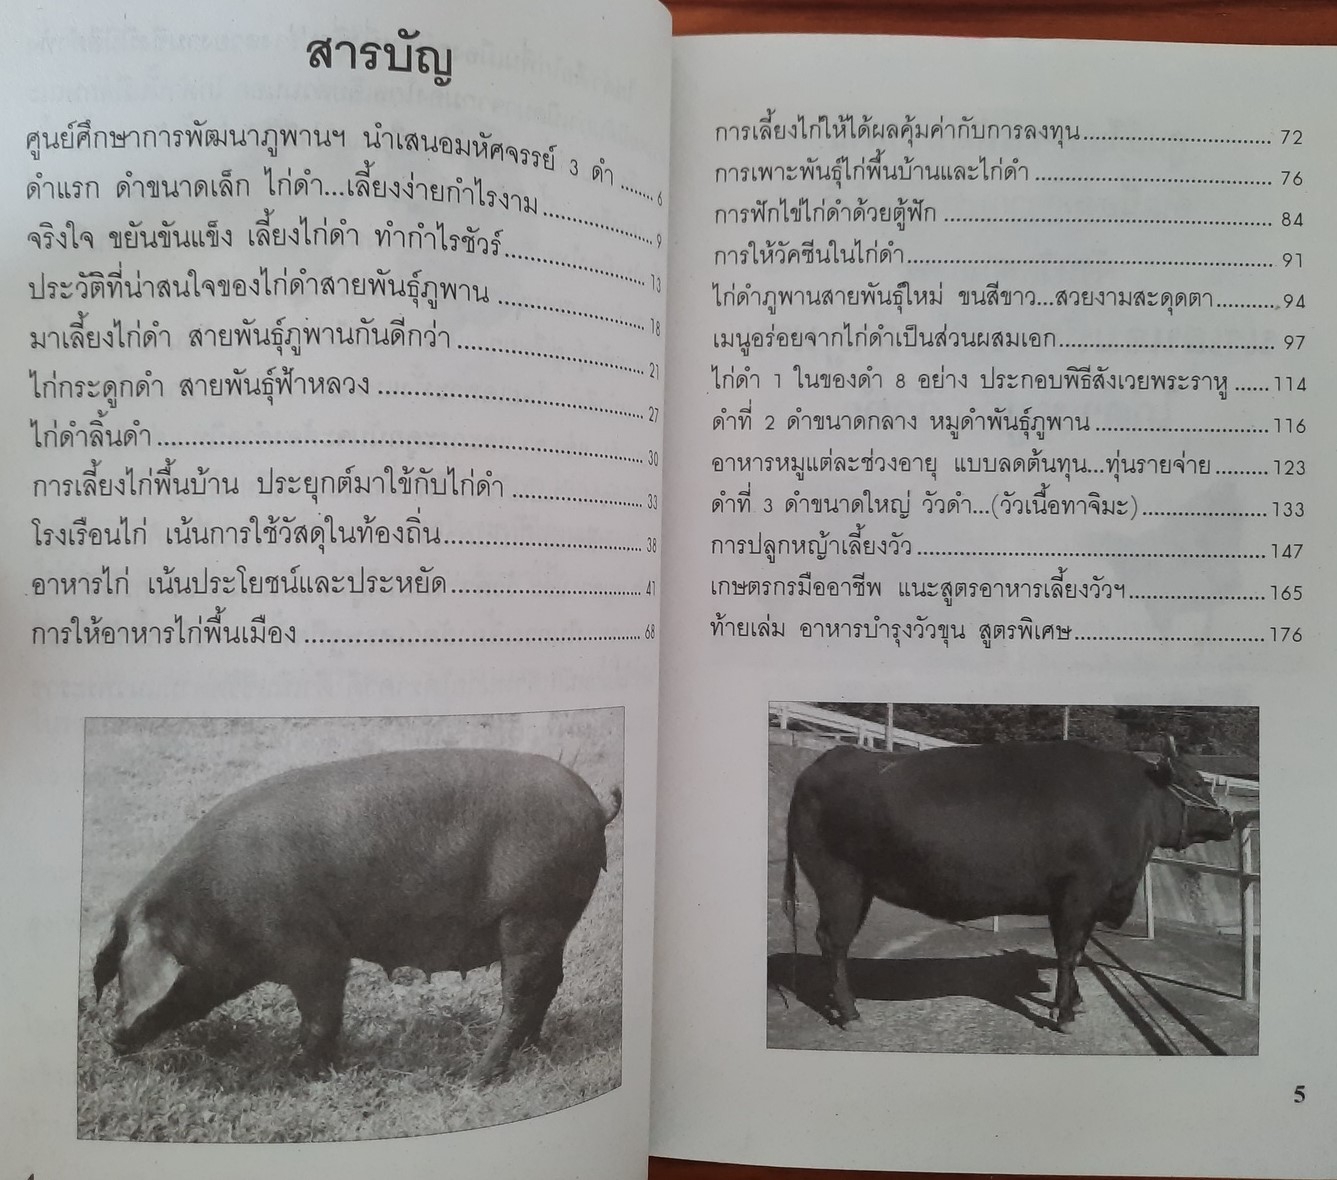 สารบัญ
ศูนย์ศึกษาการพัฒนาภูพานฯ นำเสนอมหัศจรรย์ 3 ดำ ...... 6
ดำแรก ดำขนาดเล็ก ไก่ดำ...เลี้ยงง่ายกำไรงาม ...... 9
จริงใจ ขยันขันแข็ง เลี้ยงไก่ดำ ทำกำไรชัวร์ ...... 13
ประวัติที่น่าสนใจของไก่ดำสายพันธุ์ภูพาน ...... 18
มาเลี้ยงไก่ดำ สายพันธุ์ภูพานกันดีกว่า ...... 21
ไก่กระดูกดำ สายพันธุ์ฟ้าหลวง ...... 27
ไก่ดำลิ้นดำ ...... 30
การเลี้ยงไก่พื้นบ้าน ประยุกต์มาใช้กับไก่ดำ ...... 33
โรงเรือนไก่ เน้นการใช้วัสดุในท้องถิ่น ...... 38
อาหารไก่ เน้นประโยชน์และประหยัด ...... 41
การให้อาหารไก่พื้นเมือง ...... 68
การเลี้ยงไก่ให้ได้ผลคุ้มค่ากับการลงทุน ...... 72
การเพาะพันธุ์ไก่พื้นบ้านและไก่ดำ ...... 76
การฟักไข่ไก่ดำด้วยตู้ฟัก ...... 84
การให้วัคซีนในไก่ดำ ...... 91
ไก่ดำภูพานสายพันธุ์ใหม่ ขนสีขาว...สวยงามสะดุดตา ...... 94
เมนูอร่อยจากไก่ดำเป็นส่วนผสมเอก ...... 97
ไก่ดำ 1 ในของดำ 8 อย่าง ประกอบพิธีสังเวยพระราหู ...... 114
ดำที่ 2 ดำขนาดกลาง หมูดำพันธุ์ภูพาน ...... 116
อาหารหมูแต่ละช่วงอายุ แบบลดต้นทุน...ทุ่นรายจ่าย ...... 123
ดำที่ 3 ดำขนาดใหญ่ วัวดำ...(วัวเนื้อทาจิมะ) ...... 133
การปลูกหญ้าเลี้ยงวัว ...... 147
เกษตรกรมืออาชีพ แนะสูตรอาหารเลี้ยงวัวฯ ...... 165
ท้ายเล่ม อาหารบำรุงวัวขุน สูตรพิเศษ ...... 176
5